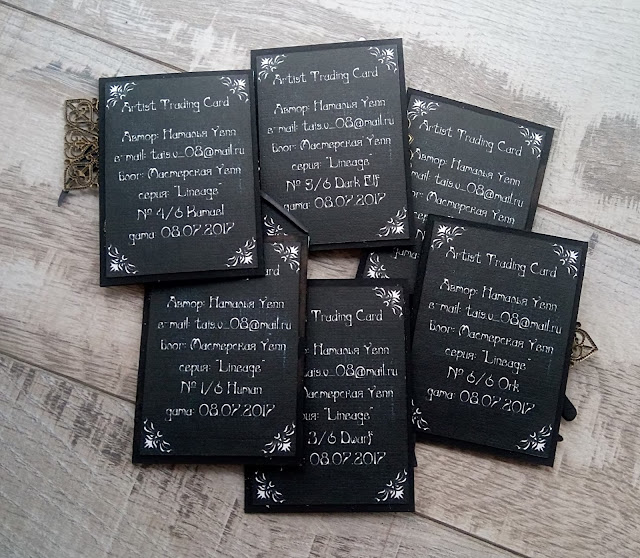 Artist Trading Card
Автор: Наталья Yenn
e-mail: tais.v_08@mail.ru
Блог: Мастерская Yenn
серия: "Lineage"
№ 4/6 Kamael
дата: 08.07.2017
Artist Trading Card
Автор: Наталья Yenn
e-mail: tais.v_08@mail.ru
Блог: Мастерская Yenn
серия: "Lineage"
№ 3/6 Dark Elf
дата: 08.07.2017
Artist Trading Card
Автор: Наталья Yenn
e-mail: tais.v_08@mail.ru
Мастерская Yenn
Card
Автор: Наталья Yenn
e-mail: tais.v_08@mail.ru
Блог: Мастерская Yenn
серия: "Lineage"
№ 1/6 Human
дата: 08.07.2017
Trading Card
Наталья Yenn
08@mail.ru
Мастерская Yenn
"Lineage"
3/6 Dwarf
08.07.2017
Artist Trading Card
Автор: Наталья Yenn
e-mail: tais.v_08@mail.ru
Блог: Мастерская Yenn
серия: "Lineage"
№ 6/6 Ork
дата: 08.07.2017